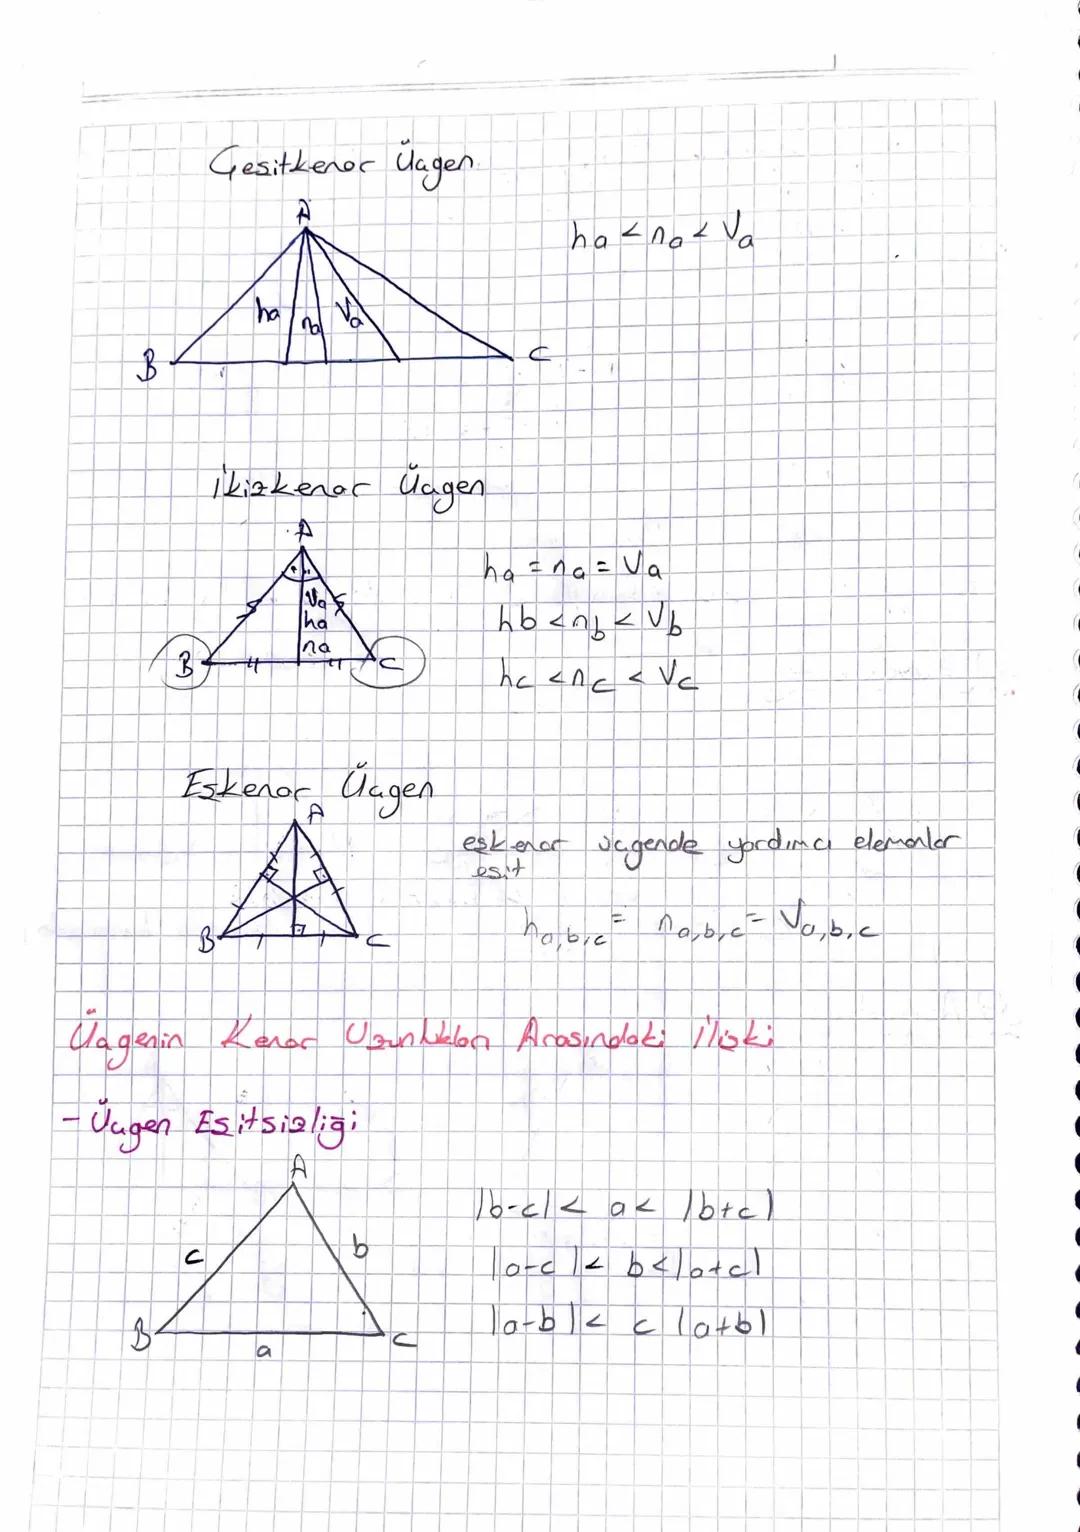 Çeşitkenar Üçgen
A
ha < na < Va
ha na Va
B C
İkizkenar Üçgen
A
ha = na = Va
Va
ha
na
hb < nb < Vb
B C
hc < nc < Vc
Eşkenar Üçgen
A
eşkenar üçgende yardımcı elemanlar
eşit
ha,b,c = na,b,c = Va,b,c
B C
Üçgenin Kenar Uzunlukları Arasındaki İlişki
- Üçgen Eşitsizliği
A
|b-c| < a < |b+c|
c b
|a-c| < b < |a+c|
|a-b| < c |a+b|
B C
a